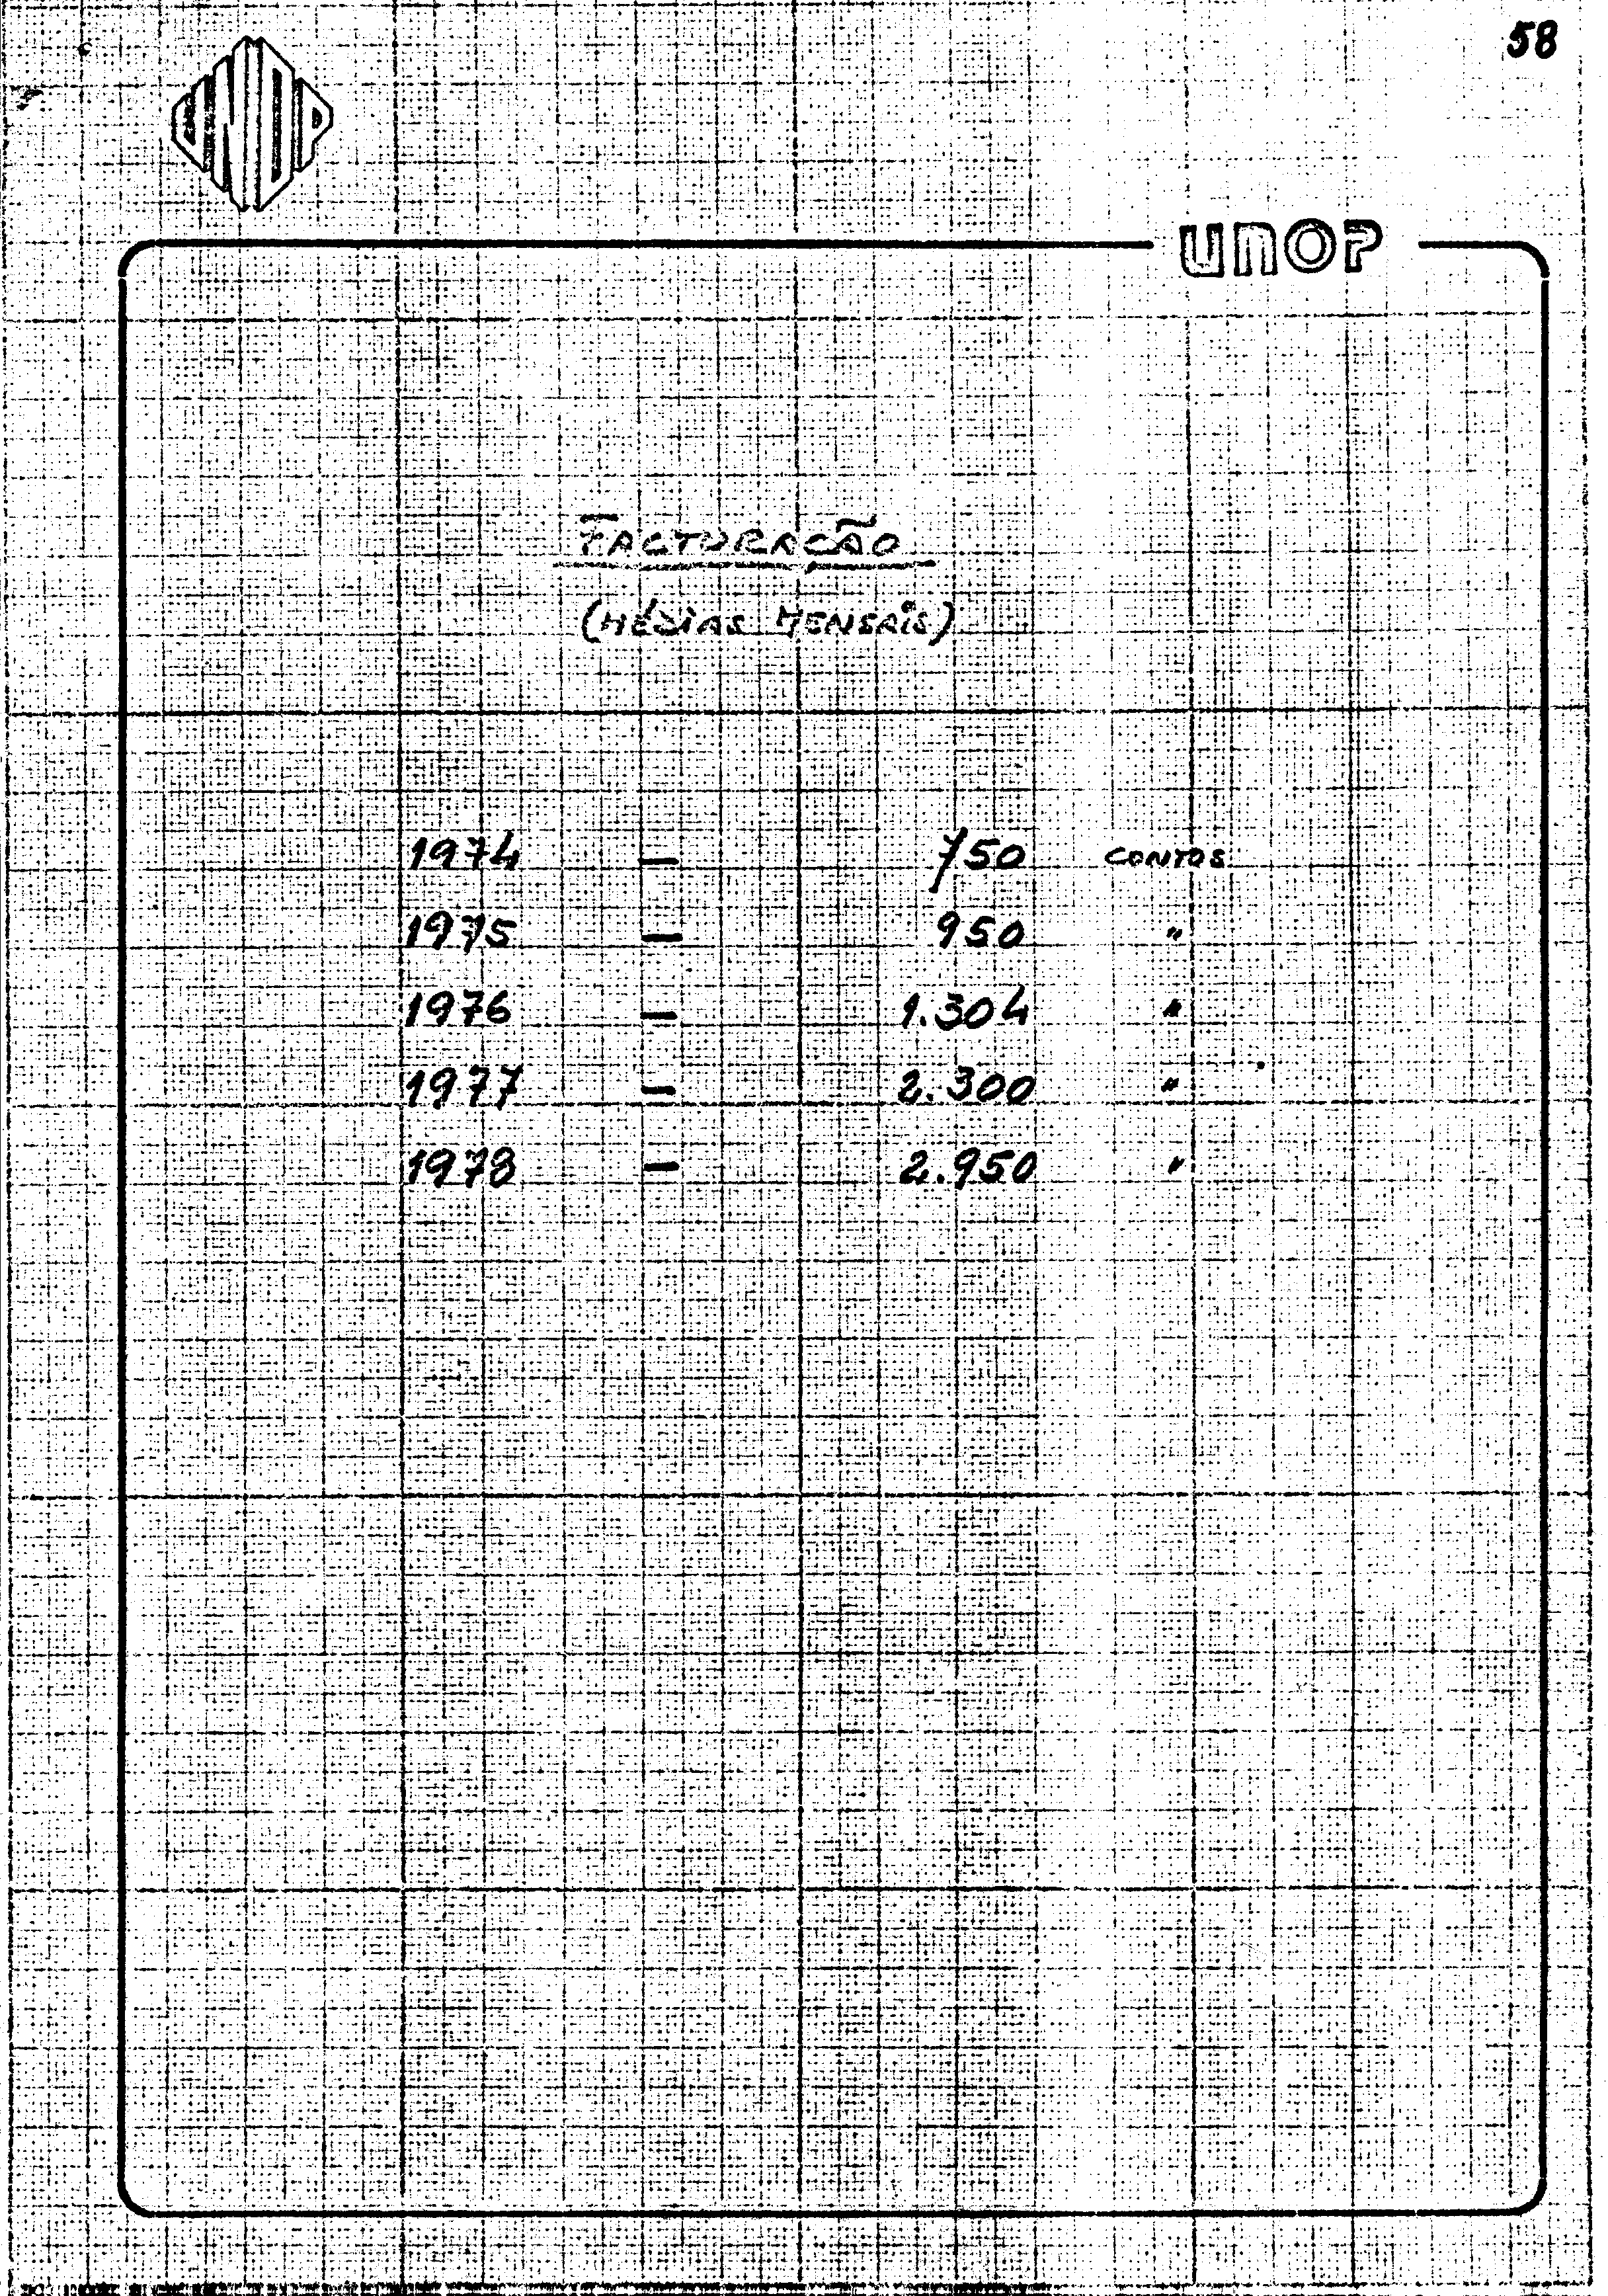 58
UNOP
FACTURAÇÃO
(MÉDIAS MENSAIS)
1974 — 750 CONTOS
1975 — 950 "
1976 — 1.304 "
1977 — 2.300 "
1978 — 2.950 "